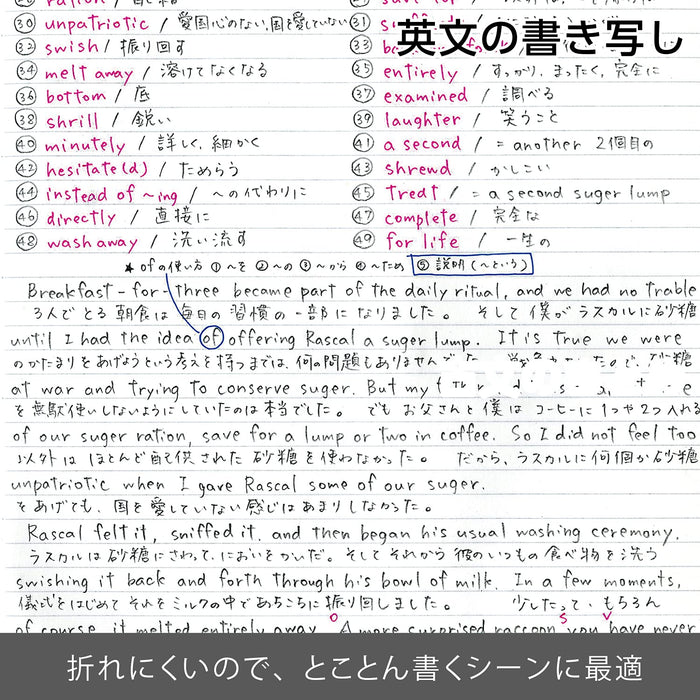 英文の書き写し
㉚ unpatriotic / 愛国心のない、国を愛していない ㉛
㉜ swish / 振り回す ㉝
㉞ melt away / 溶けてなくなる ㉟ entirely / すっかり、まったく、完全に
㊱ bottom / 底 ㊲ examined / 調べる
㊳ shrill / 鋭い ㊴ laughter / 笑うこと
㊵ minutely / 詳しく、細かく ㊶ a second / = another 2個目の
㊷ hesitate(d) / ためらう ㊸ shrewd / かしこい
㊹ instead of ~ing / ~の代わりに ㊺ Treat / = a second suger lump
㊻ directly / 直接に ㊼ complete / 完全な
㊽ wash away / 洗い流す ㊾ for life / 一生の
★ ofの使い方 ①~を ②~の ③~から ④~ため ⑤説明(~という)
Breakfast-for-three became part of the daily ritual, and we had no trable
3人でとる朝食は毎日の習慣の一部になりました。 そして僕がラスカルに砂糖
until I had the idea of offering Rascal a suger lump. It is true we were
のかたまりをあげようという考えを持つまでは、何の問題もありませんでした 砂糖
at war and trying to conserve suger. But my
を無駄使いしないようにしていたのは本当でした。 でもお父さんと僕はコーヒーに1つや2つ入れる
of our suger ration, save for a lump or two in coffee. So I did not feel too
以外はほとんど配供された砂糖を使わなかった。 だから、ラスカルに何個か砂糖
unpatriotic when I gave Rascal some of our suger.
をあげても、国を愛していない感じはあまりしなかった。
Rascal felt it, sniffed it, and then began his usual washing ceremony,
ラスカルは砂糖にさわって、においをかいだ。そしてそれから彼のいつもの食べ物を洗う
swishing it back and forth through his bowl of milk. In a few moments,
儀式をはじめてそれをミルクの中であちこちに振り回しました。 少したって、もちろん
of course, it melted entirely away. A more surprised raccoon you have never
折れにくいので、とことん書くシーンに最適